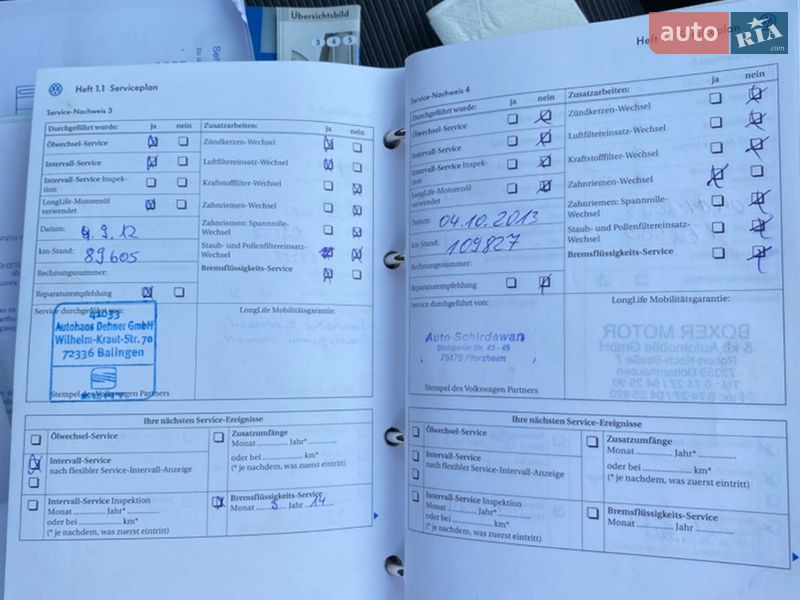 Übersichtsbild
3 4 5
auto RIA .com
Heft 1.1 Serviceplan
Service-Nachweis 3
Durchgeführt wurde: ja nein
Ölwechsel-Service
Intervall-Service
Intervall-Service Inspek-
tion
LongLife-Motorenöl
verwendet
Datum: 4.9.12
km-Stand: 89605
Rechnungsnummer:
Reparaturempfehlung
Zusatzarbeiten: ja nein
Zündkerzen-Wechsel
Luftfiltereinsatz-Wechsel
Kraftstofffilter-Wechsel
Zahnriemen-Wechsel
Zahnriemen: Spannrolle-
Wechsel
Staub- und Pollenfiltereinsatz-
Wechsel
Bremsflüssigkeits-Service
Service durchgeführt von:
41033
Autohaus Dehner GmbH
Wilhelm-Kraut-Str. 70
72336 Balingen
Stempel des Volkswagen Partners
LongLife Mobilitätsgarantie:
Ihre nächsten Service-Ereignisse
Ölwechsel-Service
Intervall-Service
nach flexibler Service-Intervall-Anzeige
Intervall-Service Inspektion
Monat Jahr*
oder bei km*
(* je nachdem, was zuerst eintritt)
Zusatzumfänge
Monat Jahr*
oder bei km*
(* je nachdem, was zuerst eintritt)
Bremsflüssigkeits-Service
Monat 9 Jahr 14
Heft
plan
Service-Nachweis 4
Durchgeführt wurde: ja nein
Ölwechsel-Service
Intervall-Service
Intervall-Service Inspek-
tion
LongLife-Motorenöl
verwendet
Datum: 04.10.2013
km-Stand: 109827
Rechnungsnummer:
Reparaturempfehlung
Zusatzarbeiten: ja nein
Zündkerzen-Wechsel
Luftfiltereinsatz-Wechsel
Kraftstofffilter-Wechsel
Zahnriemen-Wechsel
Zahnriemen: Spannrolle-
Wechsel
Staub- und Pollenfiltereinsatz-
Wechsel
Bremsflüssigkeits-Service
Service durchgeführt von:
Auto-Schirdewan
Stuttgarter Str. 43-45
75179 Pforzheim
Stempel des Volkswagen Partners
LongLife Mobilitätsgarantie:
BOXER MOTOR
Automobile GmbH
Robert-Koch-Straße 7
72359 Dotternhausen
Ihre nächsten Service-Ereignisse
Ölwechsel-Service
Intervall-Service
nach flexibler Service-Intervall-Anzeige
Intervall-Service Inspektion
Monat Jahr*
oder bei km*
(* je nachdem, was zuerst eintritt)
Zusatzumfänge
Monat Jahr*
oder bei km*
(* je nachdem, was zuerst eintritt)
Bremsflüssigkeits-Service
Monat Jahr